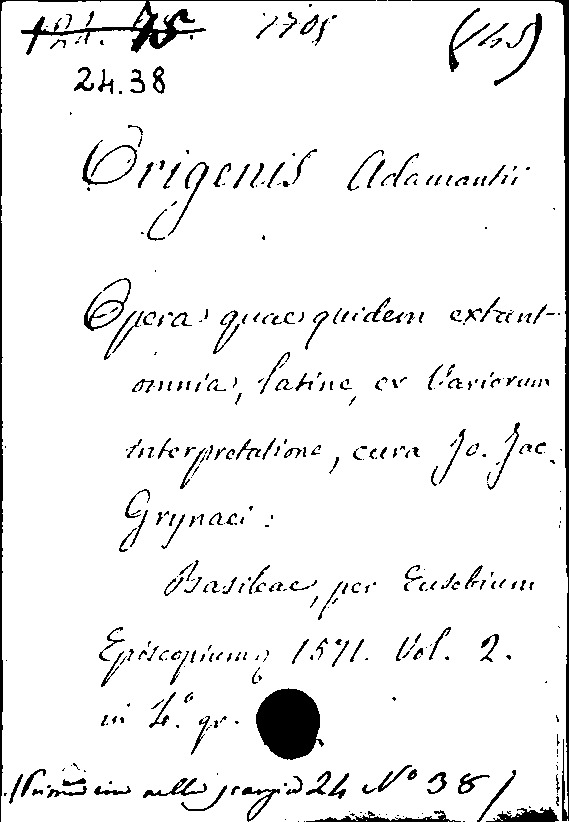 124. 75. 1705 (145)
24.38
Origenis Adamantii
Opera quae quidem extant
omnia, latine, ex Variorum
interpretatione, cura Jo. Jac.
Grynaei:
Basileae, per Eusebium
Episcopium, 1571. Vol. 2.
in 4.° gr.
nello 24 N° 38)